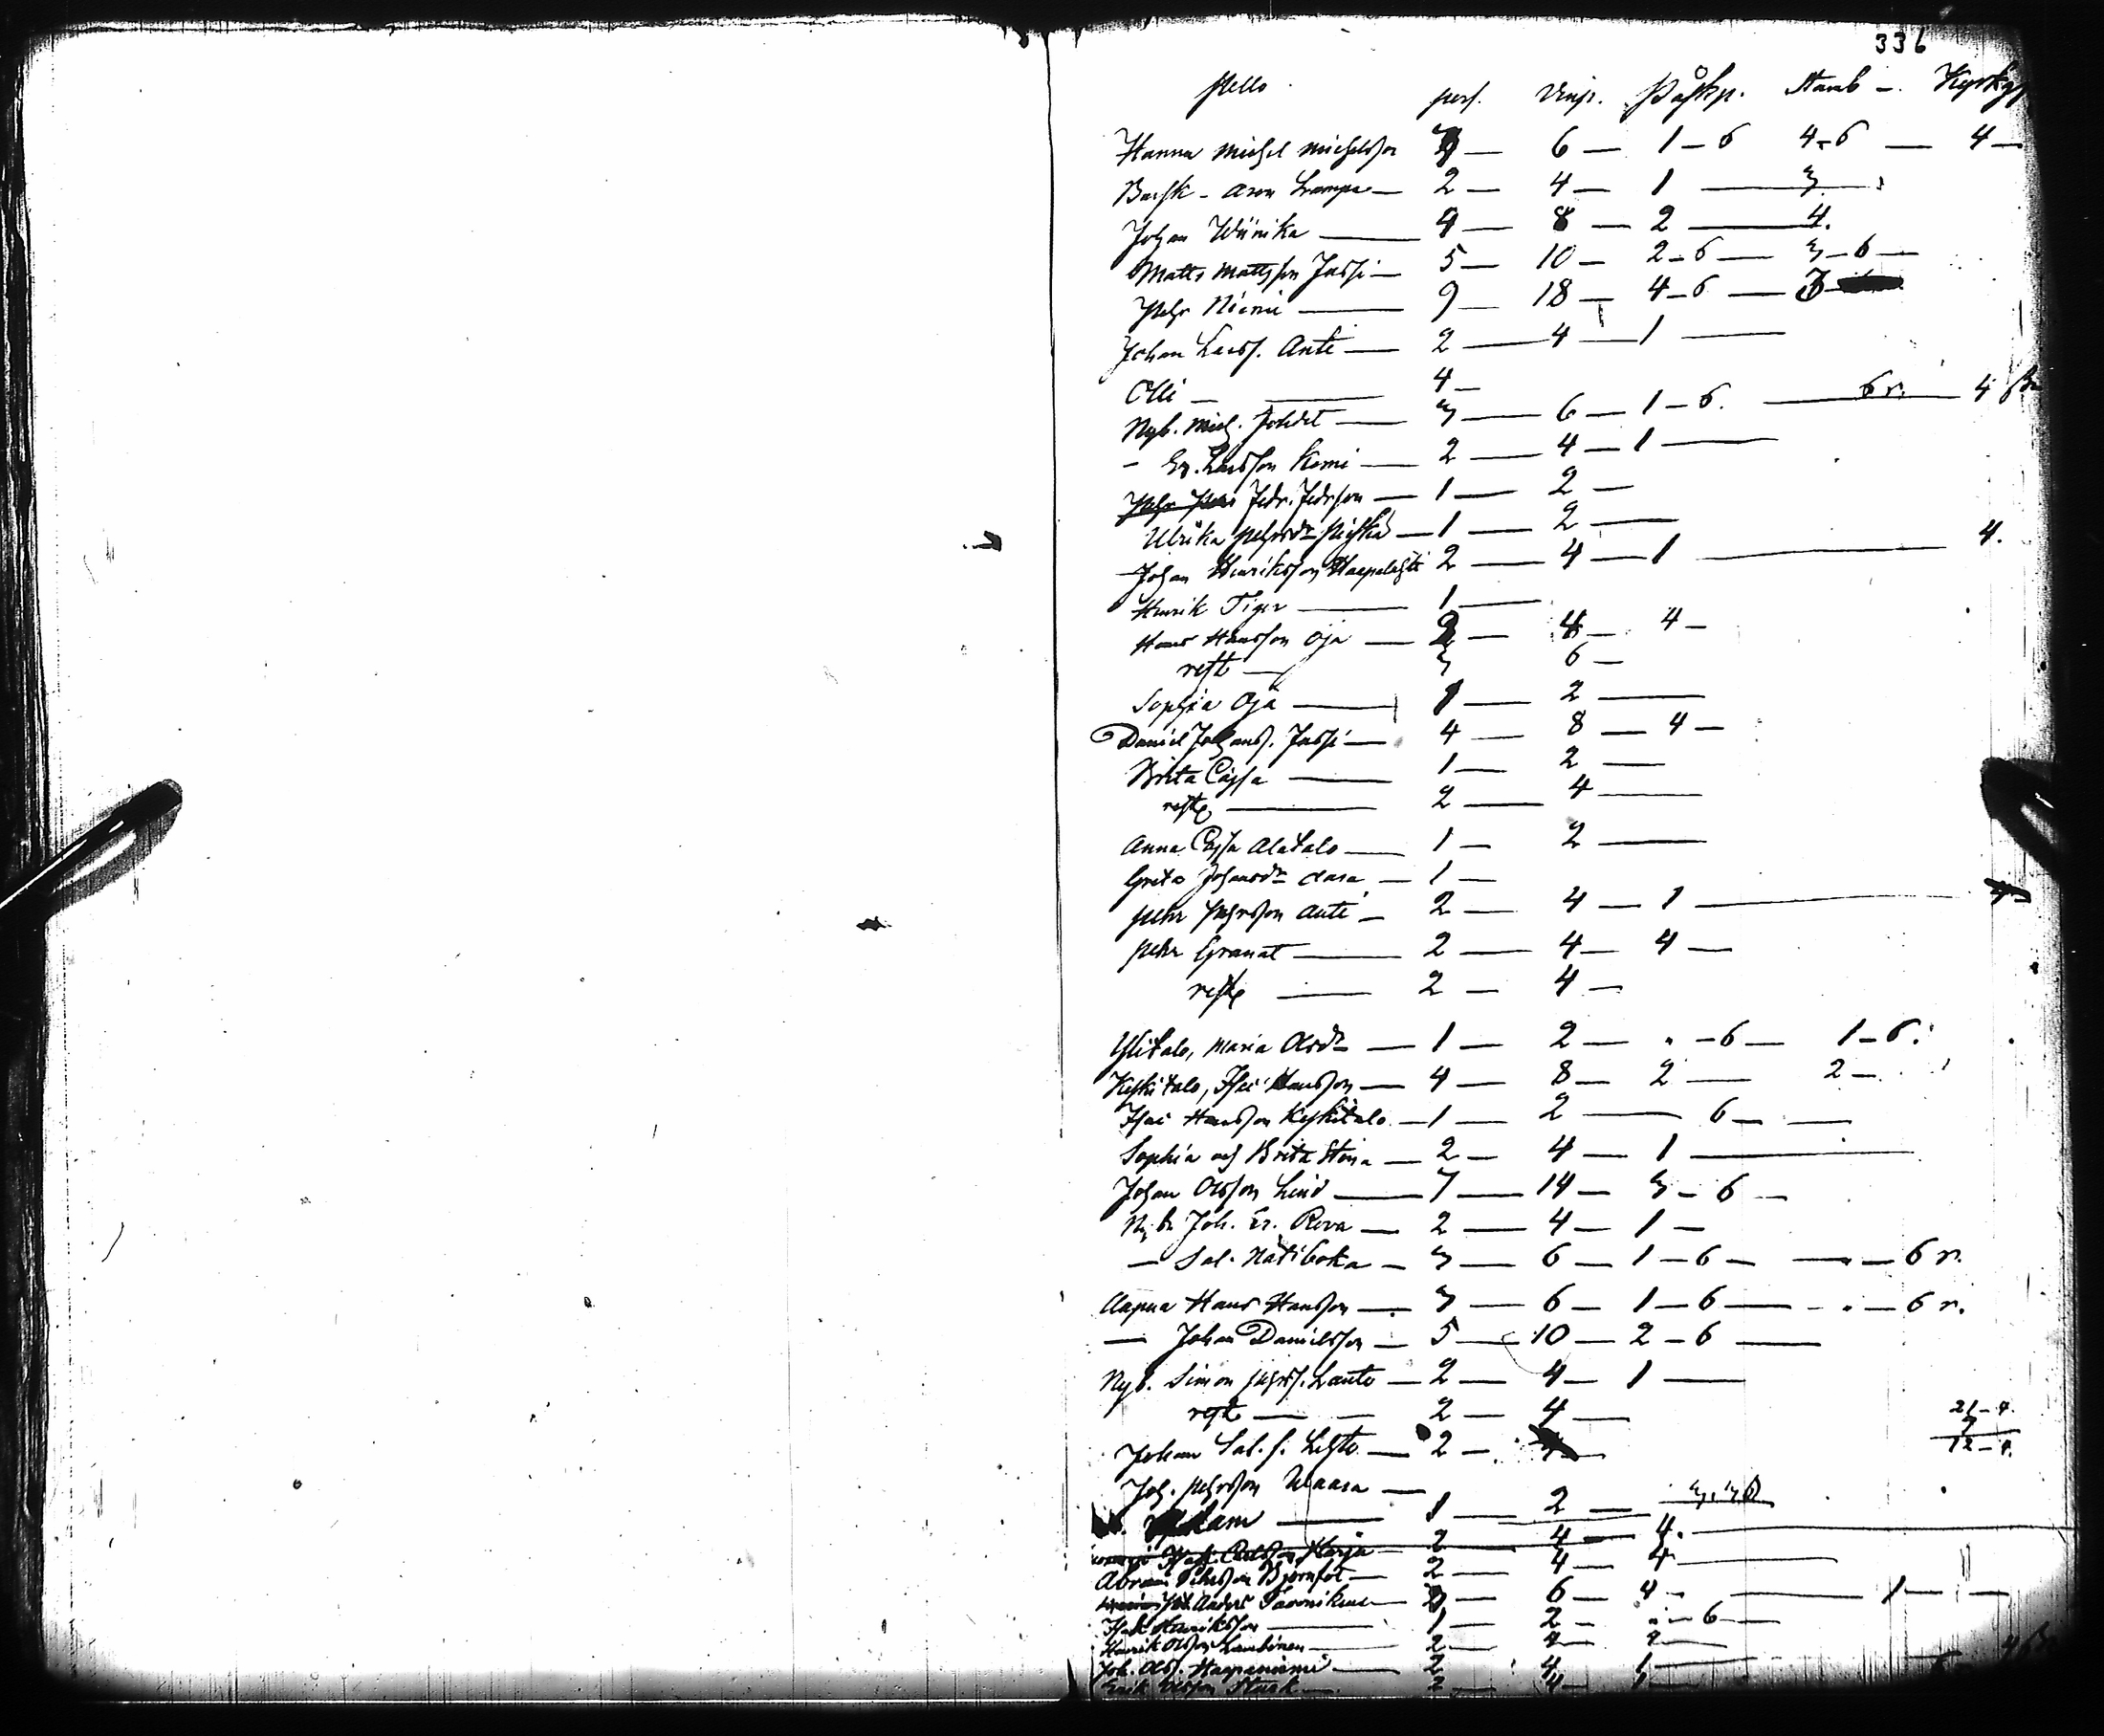 336
Pello pers. Vinp. Påskp. Stamb -. Kyrkg
Hanna Michel Michelsson 3 — 6 — 1 - 6 4 - 6 — 4 —
Back - Aron Lampa — 2 — 4 — 1 — 3
Johan Wünika — 4 — 8 — 2 — 4.
Matts Mattsson Jussi — 5 — 10 — 2 - 6 — 3 - 6 —
Pehr Niemi — 9 — 18 — 4 - 6 —
Johan Larss. Anti — 2 — 4 — 1 —
Olli — 4 —
Nyb. Mich. — 3 — 6 — 1 - 6. — 6 r. — 4
- Er. Larsson Kemi — 2 — 4 — 1 —
Pedr. Pedrson — 1 — 2 —
Ulrika Pehrsdr — 1 — 2 —
Johan Henriksson Haapalehti 2 — 4 — 1 — 4.
Henrik Tiger — 1 —
Hans Hansson Oja — 2 — 4 — 4 —
rest — 3 6 —
Sophia Oja — 1 — 2 —
Daniel Johanss. Jussi — 4 — 8 — 4 —
Brita Cajsa — 1 — 2 —
rest — 2 — 4 —
Anna Cajsa Alatalo — 1 — 2 —
Greta Johansdr — 1 —
Pehr Pehrsson Anti — 2 — 4 — 1 — 4
Pehr Granat — 2 — 4 — 4 —
rest — 2 — 4 —
Ylitalo, Maria Olsdr — 1 — 2 — " - 6 — 1 - 6.
Keskitalo, Isac Hansson — 4 — 8 — 2 — 2 —
Isac Hansson Keskitalo — 1 — 2 — 6 —
Sophia och Brita Stina — 2 — 4 — 1 —
Johan Olsson Lind — 7 — 14 — 3 - 6 —
Nyb. Joh. Er. Rova — 2 — 4 — 1 —
— Sal. Nätiboka — 3 — 6 — 1 - 6 — " — 6 r.
Aapua Hans Hansson — 3 — 6 — 1 - 6 — " — 6 r.
— Johan Danielsson — 5 — 10 — 2 - 6 —
Nyb. Simon Pehrss. Lauto — 2 — 4 — 1 —
rest — 2 — 4 — 21 - 4.
Johan Sal. s. Lehto — 2 — 12 - 4.
Joh. Pehrsson Waara —
1 — 2 —
2 — 4 — 4. —
Abram Pehrsson Björnfot — 2 — 4 — 4 —
Anders — 3 6 — 4 — 1 —
Isak Henriksson — 1 — 2 — " - 6 —
Henrik Olsson — 2 — 4 — 4 —
Joh. Olss. Haapaniemi — 2 — 4 — 1 —
Erik Nilsson — 2 — 4 — 1 —